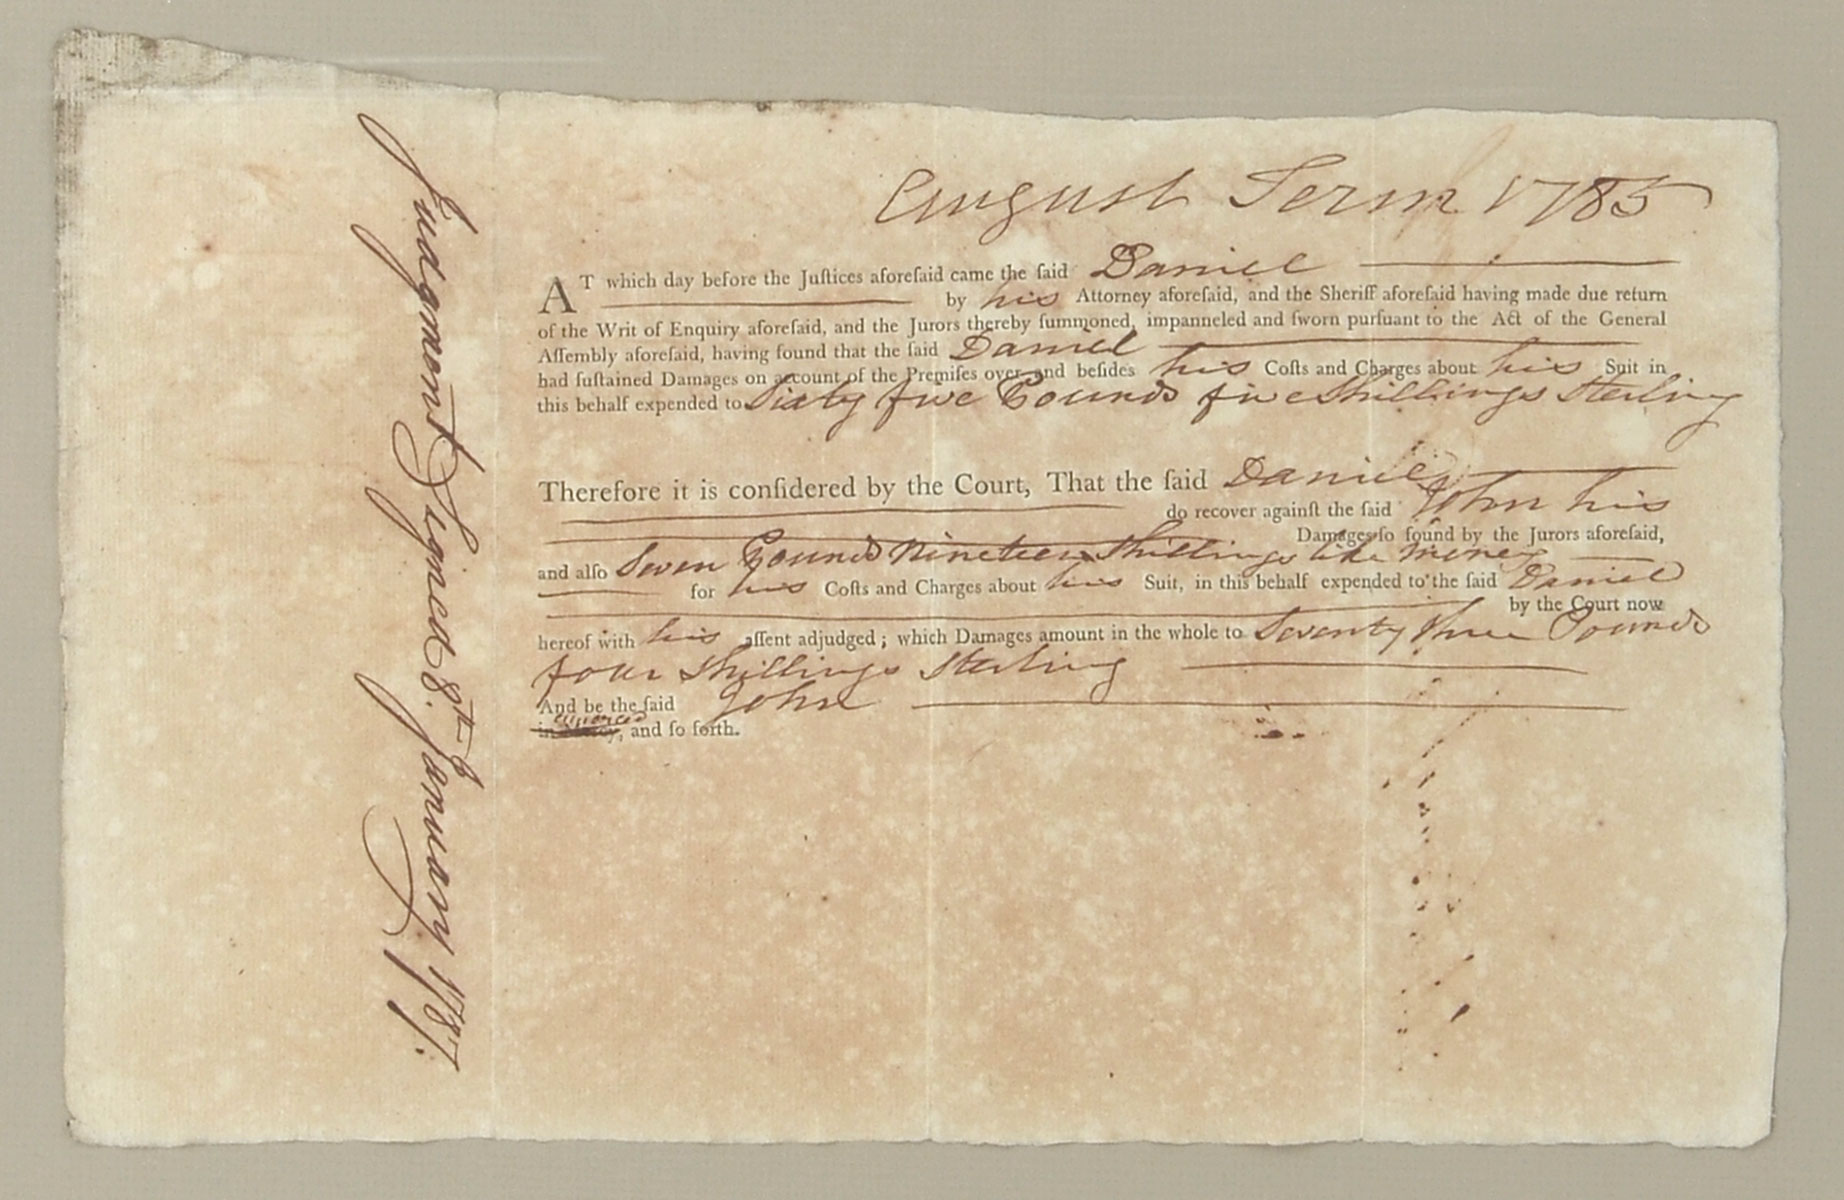 August Term 1785
AT which day before the Juſtices aforeſaid came the ſaid Daniel
by his Attorney aforeſaid, and the Sheriff aforeſaid having made due return
of the Writ of Enquiry aforeſaid, and the Jurors thereby ſummoned, impanneled and ſworn purſuant to the Act of the General
Aſſembly aforeſaid, having found that the ſaid Daniel
had ſuſtained Damages on account of the Premiſes over and beſides his Coſts and Charges about his Suit in
this behalf expended to Sixty five Pounds five Shillings Sterling
Therefore it is conſidered by the Court, That the ſaid Daniel
do recover againſt the ſaid John his
Damages ſo found by the Jurors aforeſaid,
and alſo Seven Pounds Nineteen Shillings like Money
for his Coſts and Charges about his Suit, in this behalf expended to the ſaid Daniel
by the Court now
hereof with his aſſent adjudged; which Damages amount in the whole to Seventy three Pounds
four Shillings Sterling
And be the ſaid John
amerced
in Mercy, and ſo forth.
Judgment Signed 8th January 1787.